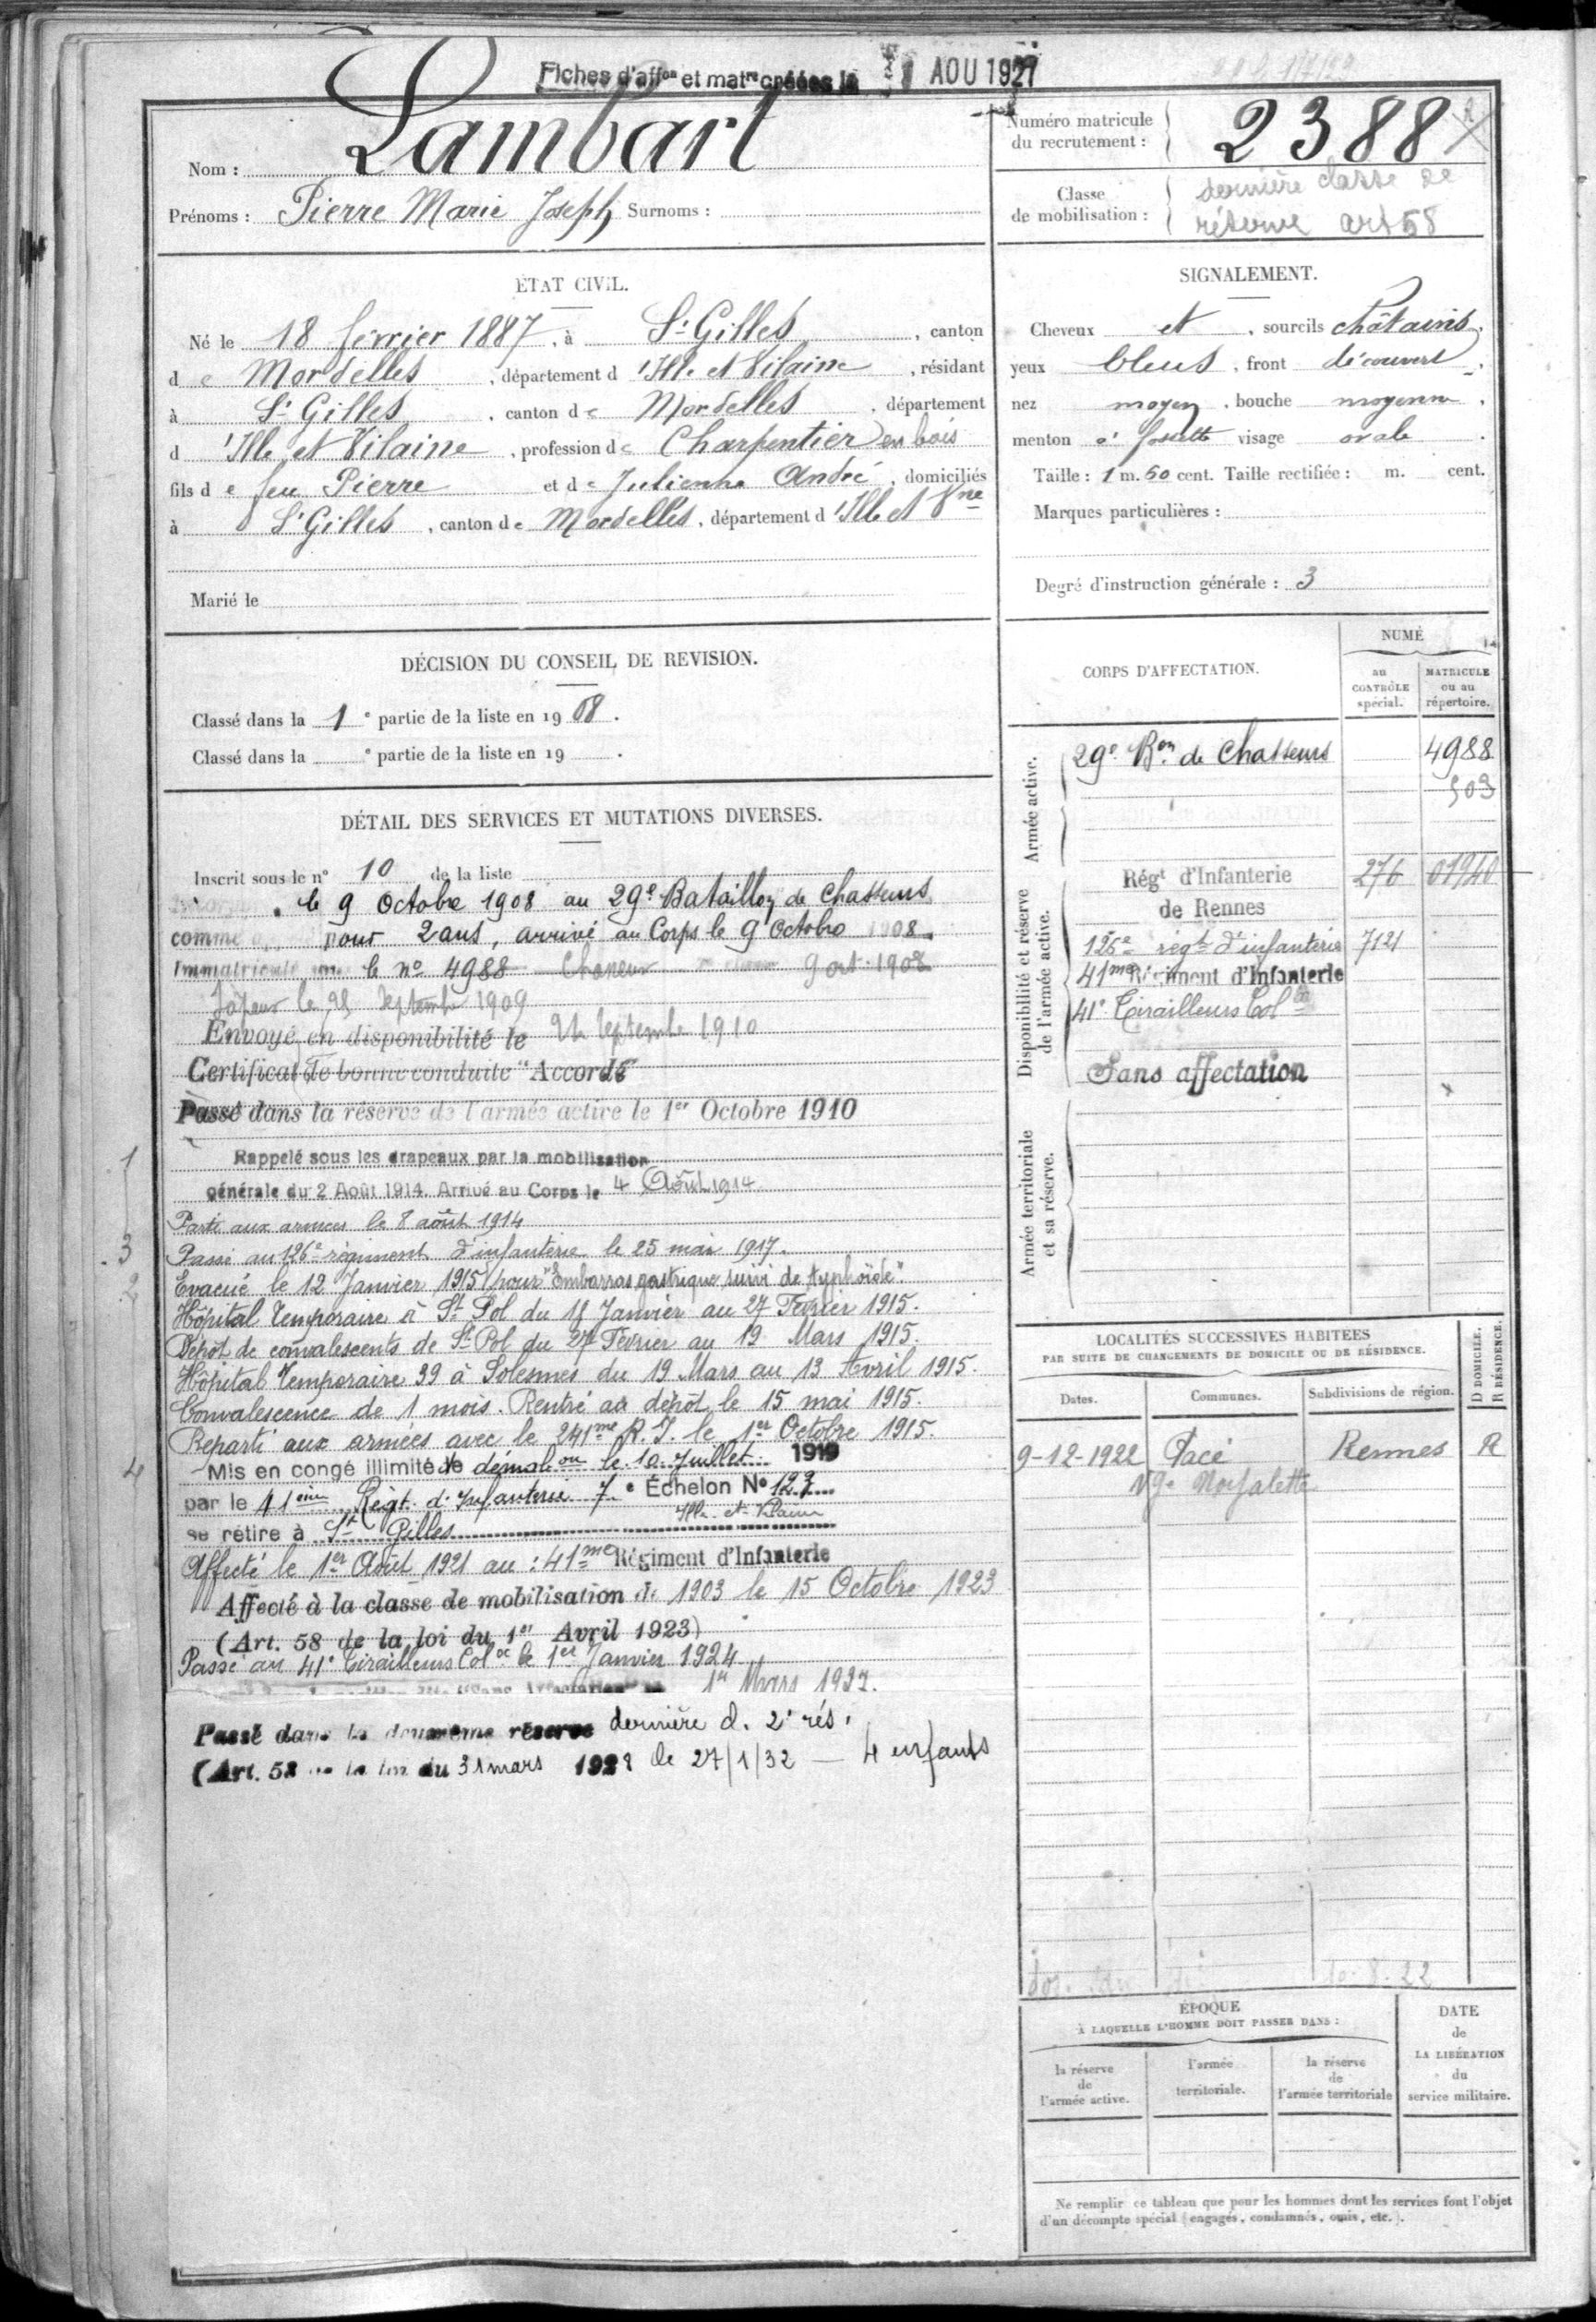 Fiches d'affon et matre créées le 1 AOU 1927
Nom : Lambart
Prénoms : Pierre Marie Joseph Surnoms :
Numéro matricule
du recrutement : 2388
Classe
de mobilisation :
dernière classe de
réserve art 58
ÉTAT CIVIL.
Né le 18 février 1887, à St Gilles, canton
de Mordelles, département d'Ille et Vilaine, résidant
à St Gilles, canton de Mordelles, département
d'Ille et Vilaine, profession de Charpentier en bois
fils de feu Pierre et de Julienne André, domiciliés
à St Gilles, canton de Mordelles, département d'Ille et Vne
Marié le
SIGNALEMENT.
Cheveux et, sourcils châtains,
yeux bleus, front découvert,
nez moyen, bouche moyenne,
menton à fossette visage ovale.
Taille : 1 m. 60 cent. Taille rectifiée : m. cent.
Marques particulières :
Degré d'instruction générale : 3
DÉCISION DU CONSEIL DE REVISION.
Classé dans la 1e partie de la liste en 1908.
Classé dans la e partie de la liste en 19 .
DÉTAIL DES SERVICES ET MUTATIONS DIVERSES.
Inscrit sous le n° 10 de la liste
le 9 Octobre 1908 au 29e Bataillon de Chasseurs
comme pour 2 ans, arrivé au Corps le 9 Octobre 1908.
Immatriculé le n° 4988 9 oct. 1908
le 25 Septembre 1909
Envoyé en disponibilité le 24 Septembre 1910
Certificat de bonne conduite "Accordé"
Passé dans la réserve de l'armée active le 1er Octobre 1910
1 Rappelé sous les drapeaux par la mobilisation
générale du 2 Août 1914. Arrivé au Corps le 4 Août 1914
Parti aux armées le 8 août 1914
3 Passé au 126e régiment d'infanterie le 25 mai 1917.
2 Evacué le 12 Janvier 1915 pour "Embarras gastrique suivi de typhoïde".
Hôpital temporaire à St Pol du 18 Janvier au 27 Février 1915.
Dépôt de convalescents de St Pol du 27 Février au 19 Mars 1915.
Hôpital Temporaire 39 à Solesmes du 19 Mars au 13 Avril 1915.
Convalescence de 1 mois. Rentré au dépôt le 15 mai 1915.
Reparti aux armées avec le 241me R.I. le 1er Octobre 1915.
4 Mis en congé illimité de démobon le 10 Juillet 1919
par le 41eme Régt d'Infanterie 7e Échelon N° 123
se retire à St Gilles Ille-et-Vilaine
Affecté le 1er Août 1921 au : 41me Régiment d'Infanterie
Affecté à la classe de mobilisation de 1903 le 15 Octobre 1923
(Art. 58 de la loi du 1er Avril 1923)
Passé au 41e Tirailleurs Colx le 1er Janvier 1924
1er Mars 1927.
Passé dans la deuxième réserve dernière cl. 2e rés.
(Art. 58 de la loi du 31 mars 1928 le 27/1/32 — 4 enfants
CORPS D'AFFECTATION.
NUMÉ
au
CONTRÔLE
spécial.
MATRICULE
ou au
répertoire.
Armée active.
29e Bon de Chasseurs 4988
503
Disponibilité et réserve
de l'armée active.
Régt d'Infanterie 276 01940
de Rennes
126e régt d'infanterie 7121
41me Régiment d'Infanterie
41e Tirailleurs Col
Sans affectation
Armée territoriale
et sa réserve.
LOCALITÉS SUCCESSIVES HABITÉES
PAR SUITE DE CHANGEMENTS DE DOMICILE OU DE RÉSIDENCE.
Dates. Communes. Subdivisions de région. D DOMICILE. R RÉSIDENCE.
9-12-1922 Pacé Rennes R
8.22
ÉPOQUE
À LAQUELLE L'HOMME DOIT PASSER DANS :
la réserve
de
l'armée active.
l'armée
territoriale.
la réserve
de
l'armée territoriale
DATE
de
LA LIBÉRATION
du
service militaire.
Ne remplir ce tableau que pour les hommes dont les services font l'objet
d'un décompte spécial (engagés, condamnés, omis, etc.).